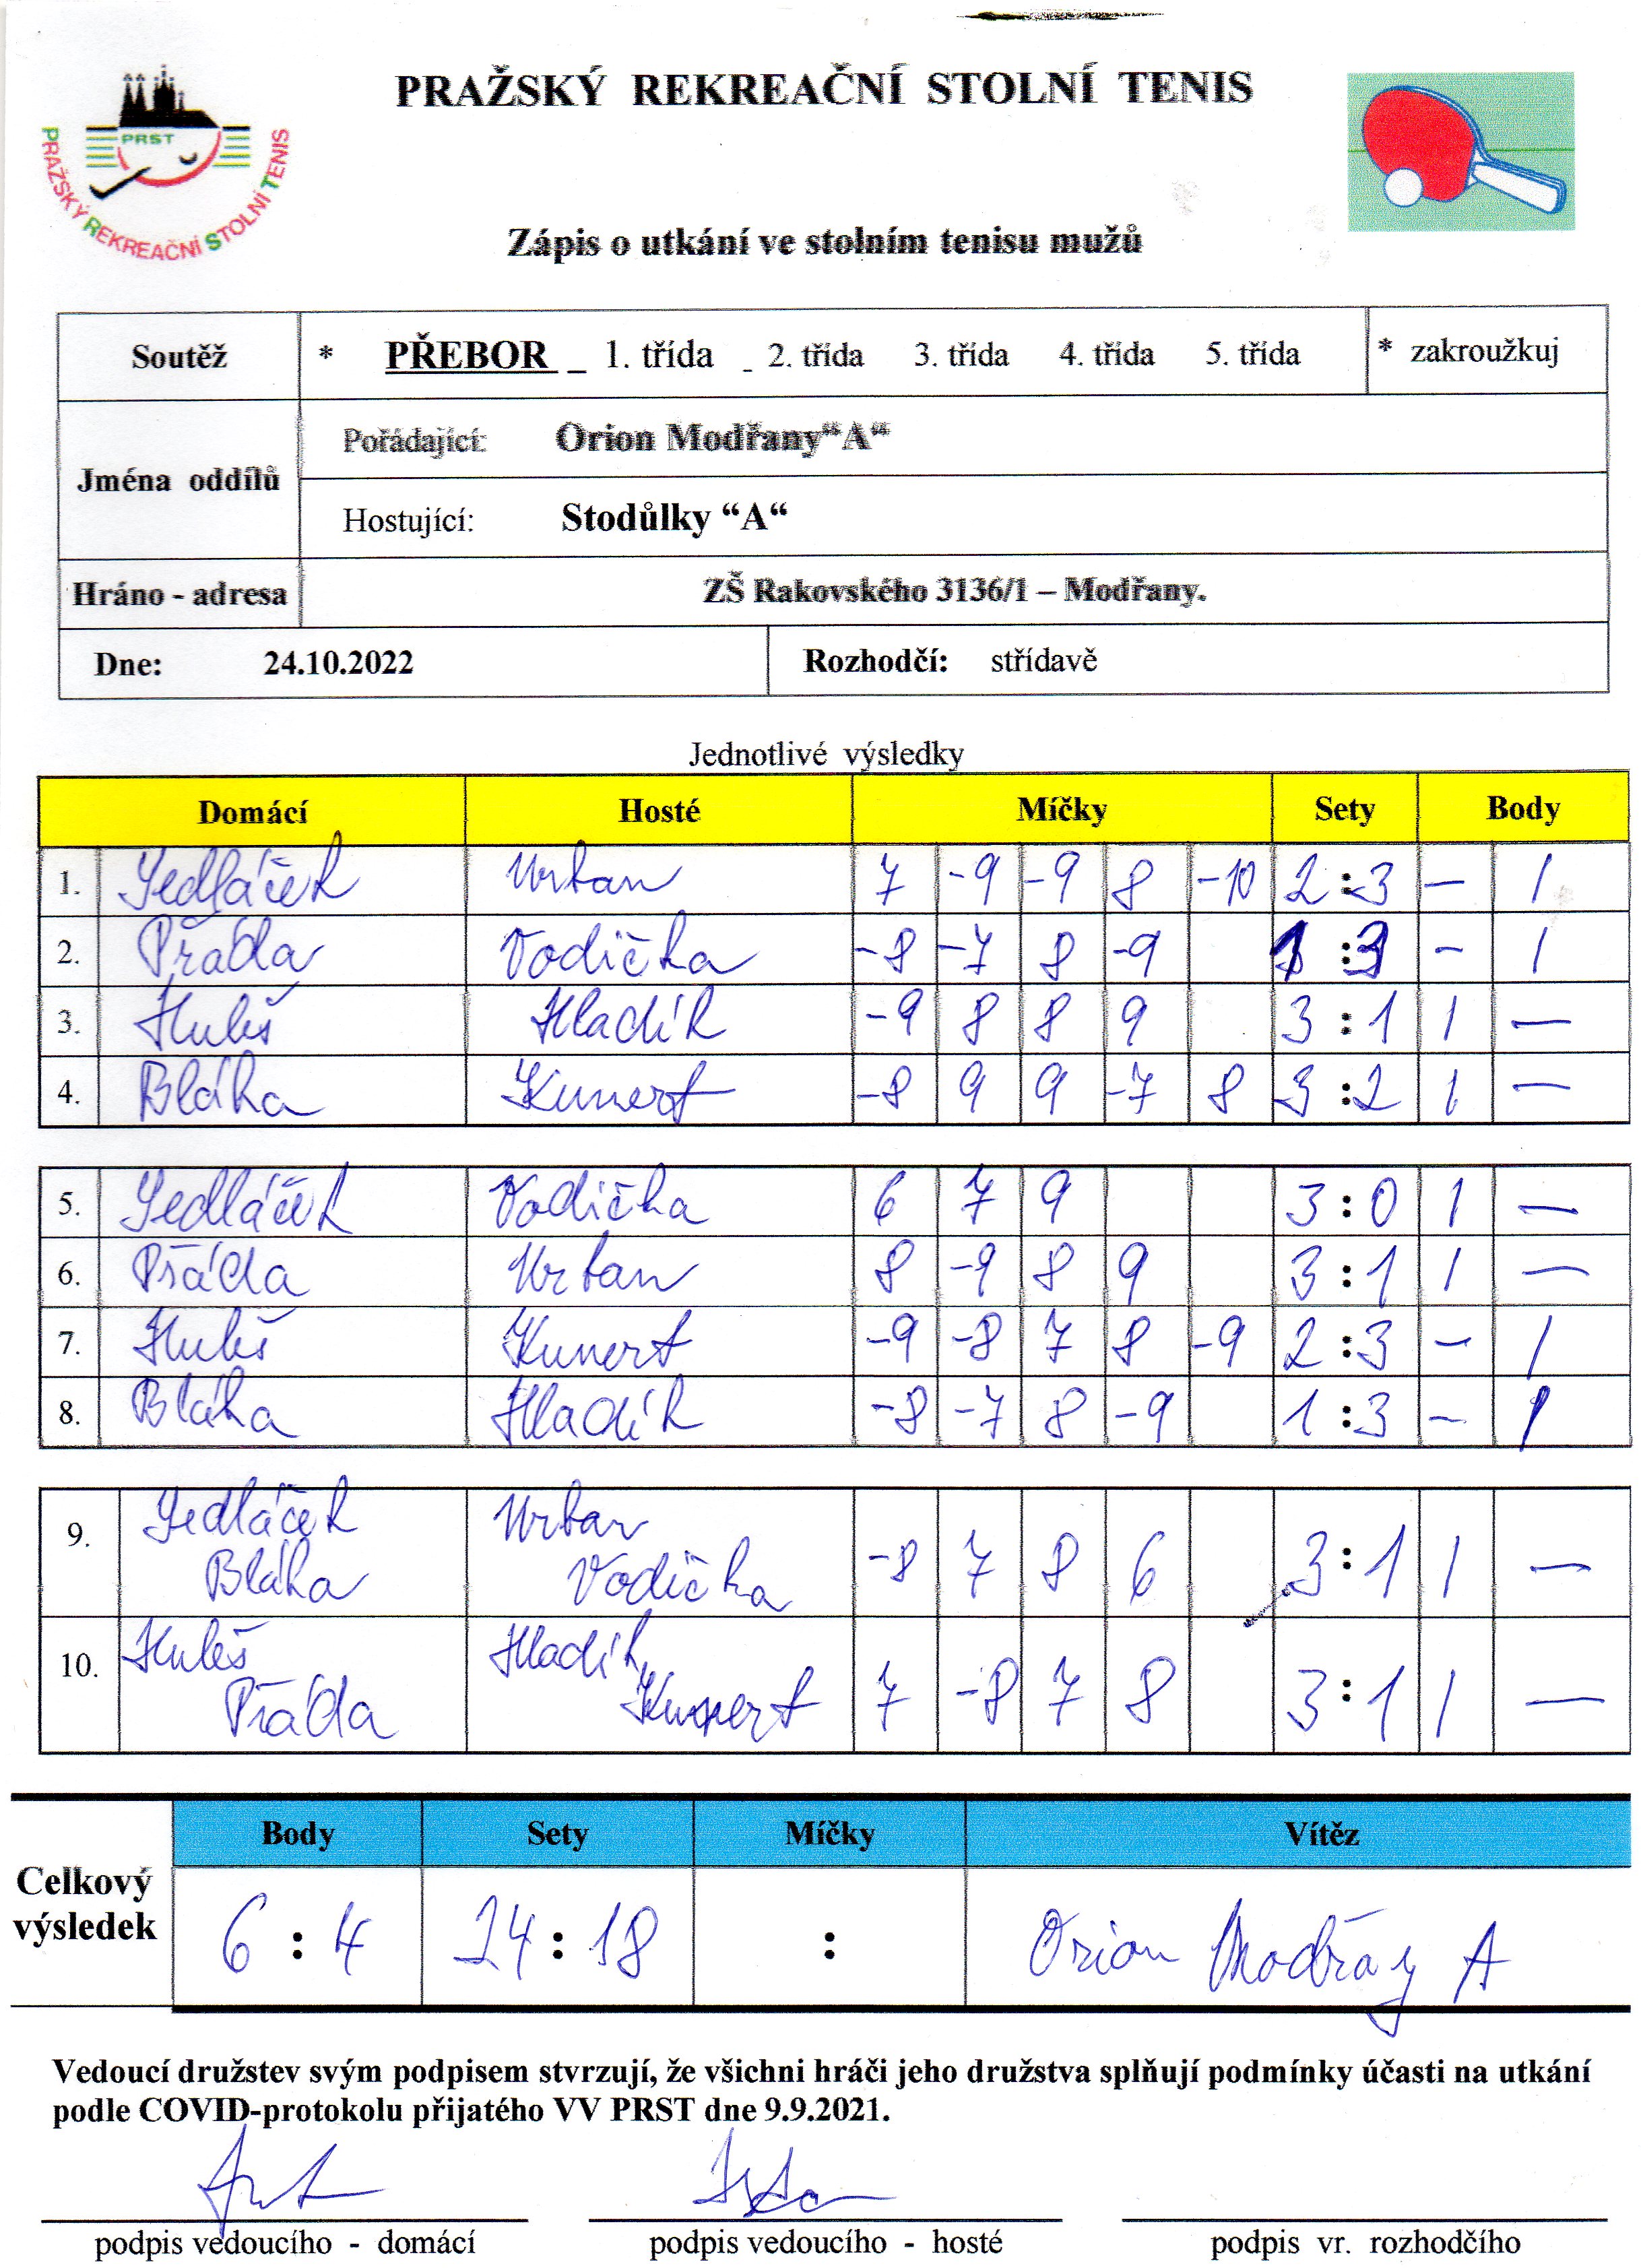 PRAŽSKÝ REKREAČNÍ STOLNÍ TENIS
PRST
PRAŽSKÝ REKREAČNÍ STOLNÍ TENIS
Zápis o utkání ve stolním tenisu mužů
Soutěž * PŘEBOR _ 1. třída - 2. třída 3. třída 4. třída 5. třída * zakroužkuj
Jména oddílů
Pořádající: Orion Modřany“A“
Hostující: Stodůlky “A“
Hráno - adresa ZŠ Rakovského 3136/1 – Modřany.
Dne: 24.10.2022 Rozhodčí: střídavě
Jednotlivé výsledky
Domácí Hosté Míčky Sety Body
1. Jedláček Urban 7 -9 -9 8 -10 2:3 — 1
2. Přáda Vodička -8 -7 8 -9 1:3 — 1
3. Huleš Hladík -9 8 8 9 3:1 1 —
4. Bláha Kunert -8 9 9 -7 8 3:2 1 —
5. Jedláček Vodička 6 7 9 3:0 1 —
6. Přáda Urban 8 -9 8 9 3:1 1 —
7. Huleš Kunert -9 -8 7 8 -9 2:3 — 1
8. Bláha Hladík -8 -7 8 -9 1:3 — 1
9. Jedláček Urban
Bláha Vodička -8 7 8 6 3:1 1 —
10. Huleš Hladík
Přáda Kunert 7 -8 7 8 3:1 1 —
Body Sety Míčky Vítěz
Celkový výsledek 6 : 4 24 : 18 : Orion Modřay A
Vedoucí družstev svým podpisem stvrzují, že všichni hráči jeho družstva splňují podmínky účasti na utkání
podle COVID-protokolu přijatého VV PRST dne 9.9.2021.
podpis vedoucího - domácí podpis vedoucího - hosté podpis vr. rozhodčího